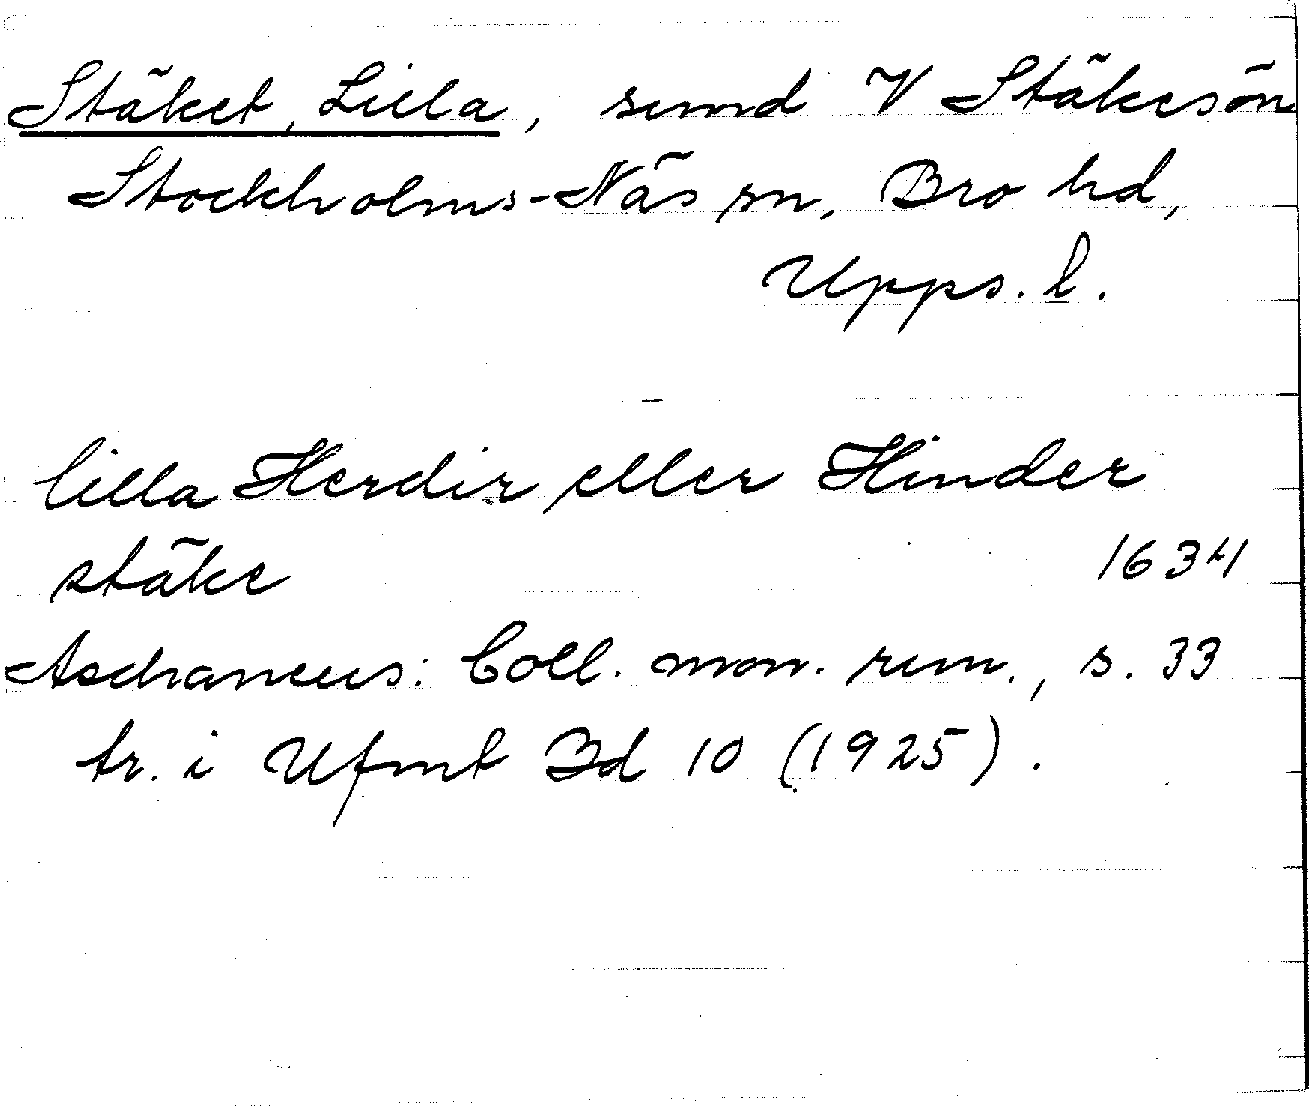 Stäket, Lilla, sund V Stäkesön
Stockholms-Näs sn, Bro hd,
Upps. l.
lilla Herdir eller Hinder
stäke 1634
Aschaneus: Coll. mon. run., s. 33
tr. i Ufmt Bd 10 (1925).